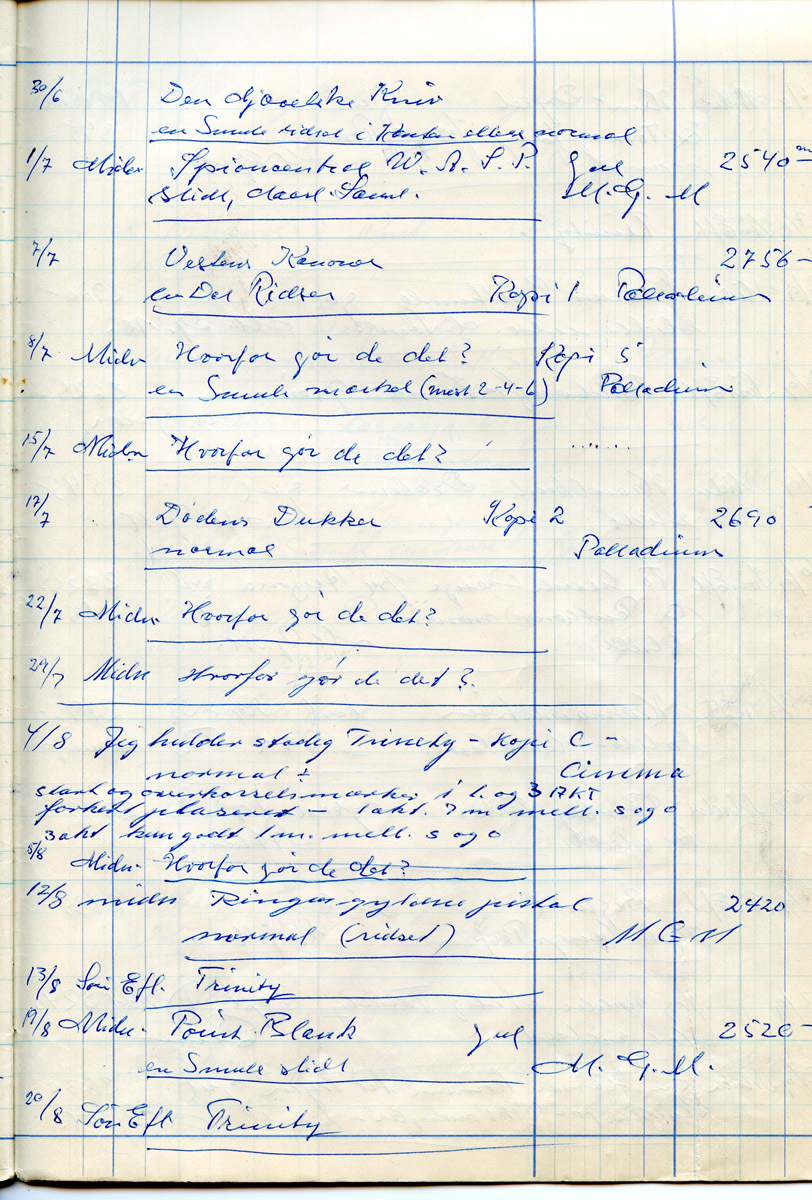 30/6 Den djævelske Kniv
en Smule ridset i Kanten ellers normal
1/7 Midn Spioncentral W. A. S. P. gul 2540
slidt, daarl. Saml. M. G. M
7/7 Vestens Kanoner 2756-
en Del Ridser Kopi 1 Palladium
8/7 Midn Hvorfor gør de det? Kopi 5
en Smule mærket (mest 2-4-6) Palladium
15/7 Midn Hvorfor gør de det? ......
17/7 Dødens Dukker Kopi 2 2690
normal Palladium
22/7 Midn Hvorfor gør de det?
29/7 Midn Hvorfor gør de det?
4/8 Jeg hedder stadig Trinity - Kopi C -
normal ± Cinema
start og overkørselsmærker i 1. og 3 AKT
forkert plaseret - 1 akt. 7 m mell. s og o
3 akt kun godt 1 m. mell. s og o
5/8 Midn. Hvorfor gør de det?
12/8 midn Ringos gyldne pistol 2420
normal (ridset) M G M
13/8 Søn Eft. Trinity
19/8 Midn. Point Blank gul 2520-
en Smule slidt M. G. M.
20/8 Søn Eft Trinity